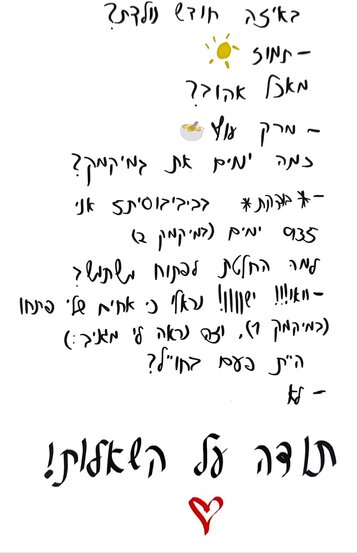 באיזה חודש נולדת?
- תמוז ☀️
מאכל אהוב?
- מרק עוף 🍜
כמה ימים את במיקמק?
- *בודקת* בביביבוסיתז אני
935 ימים (במיקמק 2)
למה החלטת לפתוח משתמש?
- וואו!!! ישןןןןן! נראלי כי אחים שלי פתחו
(במיקמק 1), וזה נראה לי מגניב :)
היית פעם בחו"ל?
- לא
תודה על השאלות!
❤️